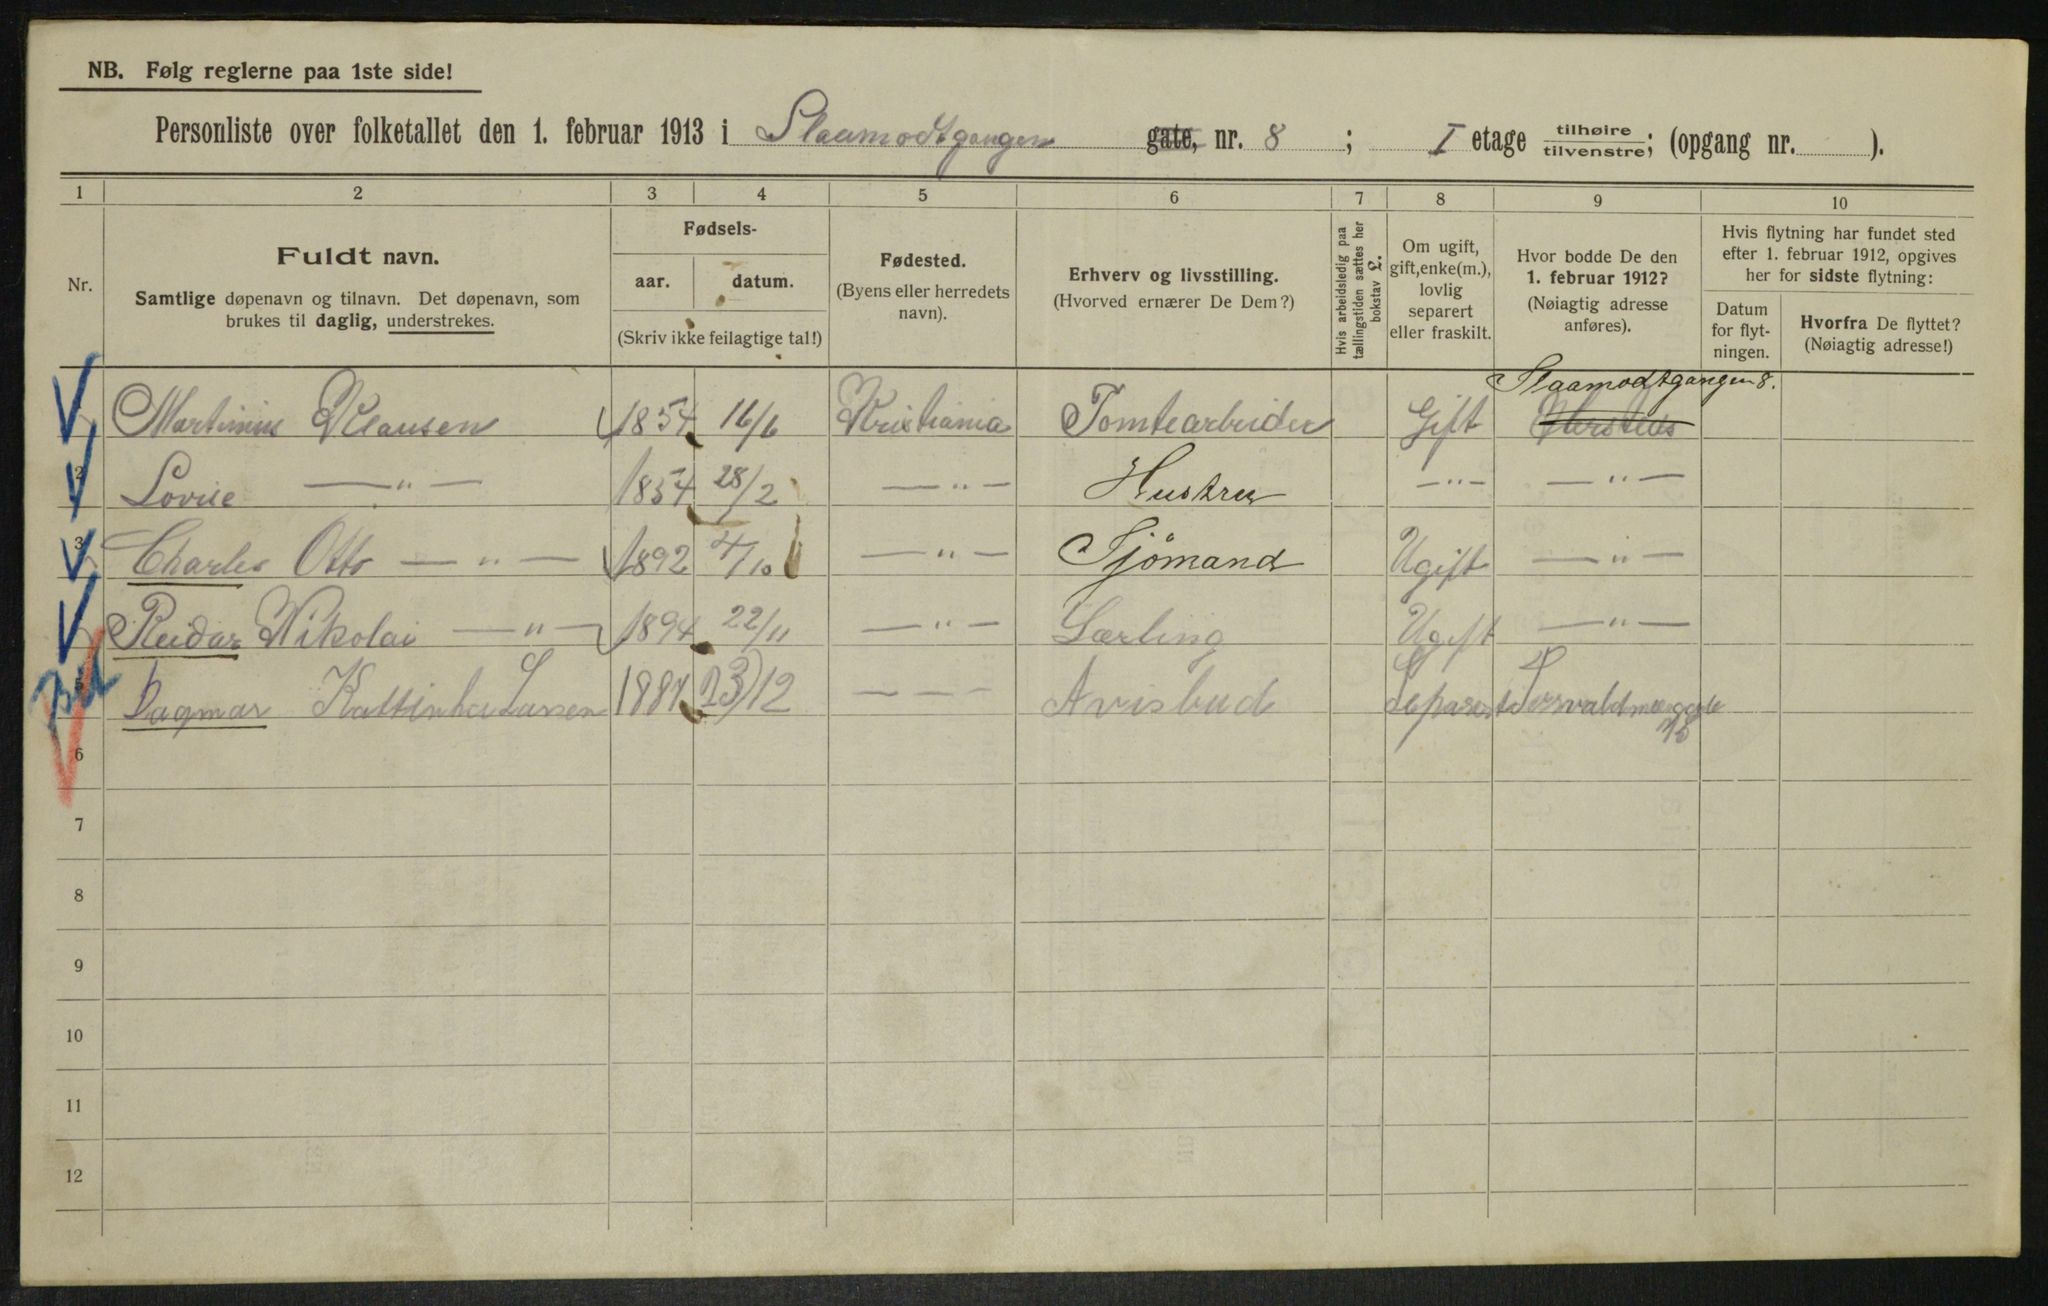 NB. Følg reglerne paa 1ste side!
Personliste over folketallet den 1. februar 1913 i Slaamodtgangen gate, nr. 8 ; I etage tilhøire tilvenstre; (opgang nr. ).
1 2 3 4 5 6 7 8 9 10
Nr.
Fuldt navn.
Samtlige døpenavn og tilnavn. Det døpenavn, som
brukes til daglig, understrekes.
Fødsels-
aar. datum.
(Skriv ikke feilagtige tal!)
Fødested.
(Byens eller herredets
navn).
Erhverv og livsstilling.
(Hvorved ernærer De Dem?)
Hvis arbeidsledig paa
tællingstiden sættes her
bokstav L.
Om ugift,
gift, enke(m.),
lovlig
separert
eller fraskilt.
Hvor bodde De den
1. februar 1912?
(Nøiagtig adresse
anføres).
Hvis flytning har fundet sted
efter 1. februar 1912, opgives
her for sidste flytning:
Datum
for flyt-
ningen.
Hvorfra De flyttet?
(Nøiagtig adresse!)
Slaamodtgangen 8.
Martinius Klausen 1854 16/6 Kristiania Tomtearbeider Gift
2 Lovise —„— 1854 28/2 —„— Hustru —„— —„—
3 Charles Otto —„— 1892 4/10 —„— Sjömand Ugift —„—
Reidar Nikolai —„— 1894 22/11 —„— Lærling Ugift —„—
5 Dagmar Larsen 1887 23/12 — — — Avisbud Separert
6
7
8
9
10
11
12